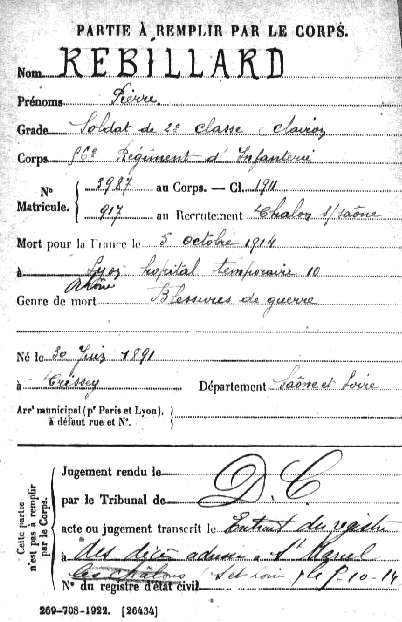 PARTIE À REMPLIR PAR LE CORPS.
Nom REBILLARD
Prénoms Pierre
Grade Soldat de 2e classe Clairon
Corps 56e Régiment d'Infanterie
N° Matricule. 2987 au Corps. — Cl. 1911
917 au Recrutement Chalon s/Saône
Mort pour la France le 5 octobre 1914
à Lyon hopital temporaire 10
Rhône
Genre de mort Blessures de guerre
Né le 30 Juin 1891
à Département Saône et Loire
Arrt municipal (pr Paris et Lyon), à défaut rue et N°.
Cette partie n'est pas à remplir par le Corps.
Jugement rendu le
par le Tribunal de D.C
acte ou jugement transcrit le Extrait du registre
à des décès adressé à St
N° du registre d'état civil
269-708-1922. [26434]